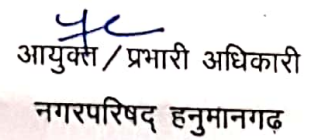 आयुक्त / प्रभारी अधिकारी
नगरपरिषद् हनुमानगढ़